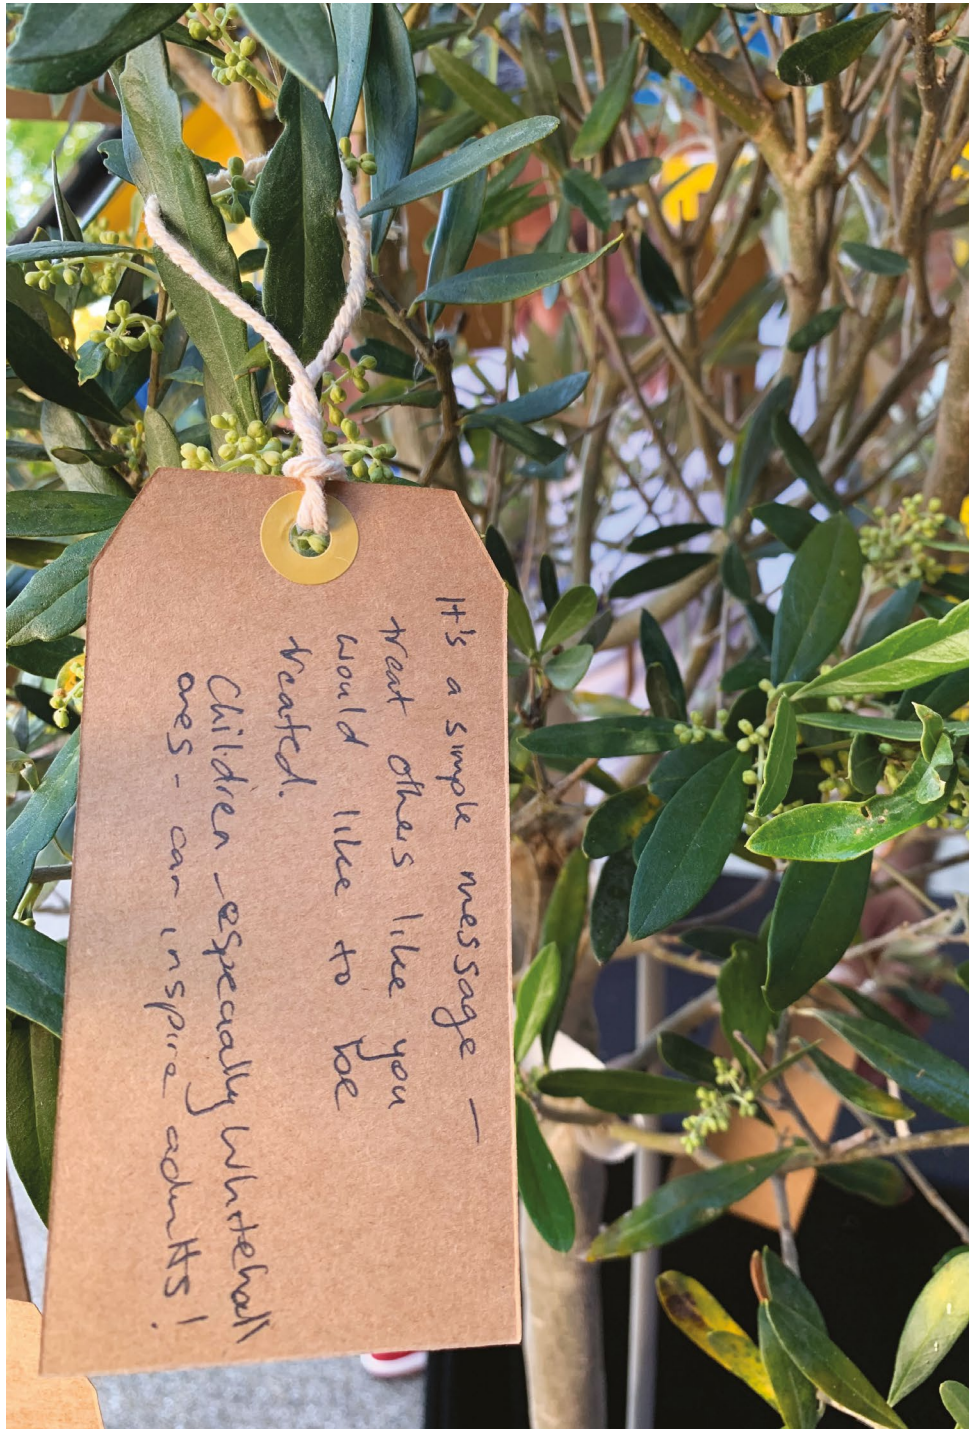 It's a simple message –
treat others like you
would like to be
treated.
Children – especially Whitehall
ones – can inspire adults!